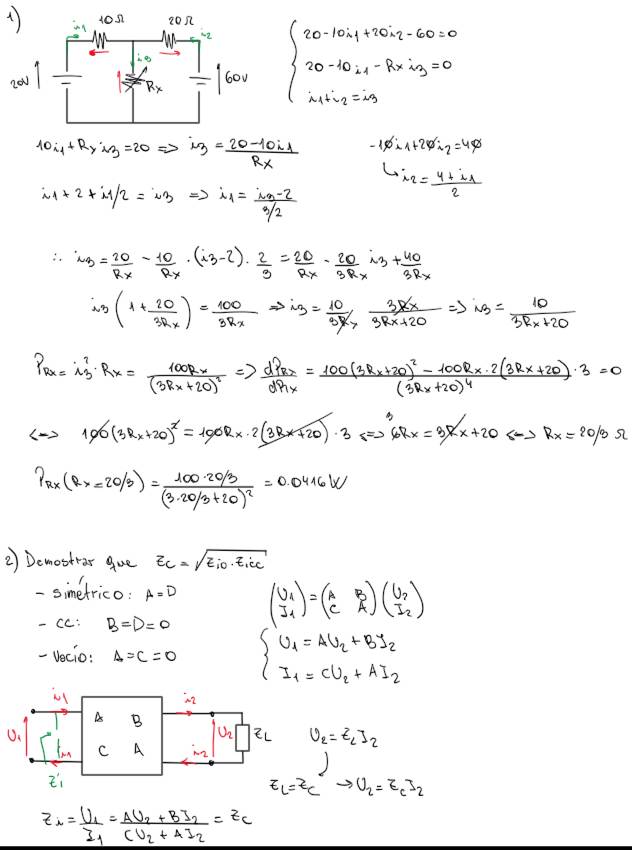 1)
i1 10Ω 20Ω i2
i3
20V Rx 60V
20-10i1+20i2-60=0
20-10i1-Rx i3=0
i1+i2=i3
10i1+Rx i3=20 => i3=(20-10i1)/Rx
-10i1+20i2=40
i2=(4+i1)/2
i1+2+i1/2=i3 => i1=(i3-2)/(3/2)
∴ i3=20/Rx - 10/Rx · (i3-2) · 2/3 = 20/Rx - 20/3Rx i3 + 40/3Rx
i3(1+20/3Rx)=100/3Rx => i3=10/3Rx · 3Rx/(3Rx+20) => i3=10/(3Rx+20)
PRx=i3²·Rx=100Rx/(3Rx+20)² => dPRx/dRx=(100(3Rx+20)²-100Rx·2(3Rx+20)·3)/(3Rx+20)⁴=0
<-> 100(3Rx+20)²=100Rx·2(3Rx+20)·3 <=> 6Rx=3Rx+20 <-> Rx=20/3 Ω
3
PRx(Rx=20/3)=(100·20/3)/(3·20/3+20)²=0.0416W
2) Demostrar que Zc=√(Zio·Zicc)
- simétrico: A=D
- cc: B=D=0
- Vacío: A=C=0
(U1 I1)=(A B C A)(U2 I2)
U1=AU2+BI2
I1=CU2+AI2
i1 A B i2
U1 U2 ZL
i1 C A i2
Zi
U2=ZLI2
ZL=Zc → U2=ZcI2
Zi=U1/I1=(AU2+BI2)/(CU2+AI2)=Zc